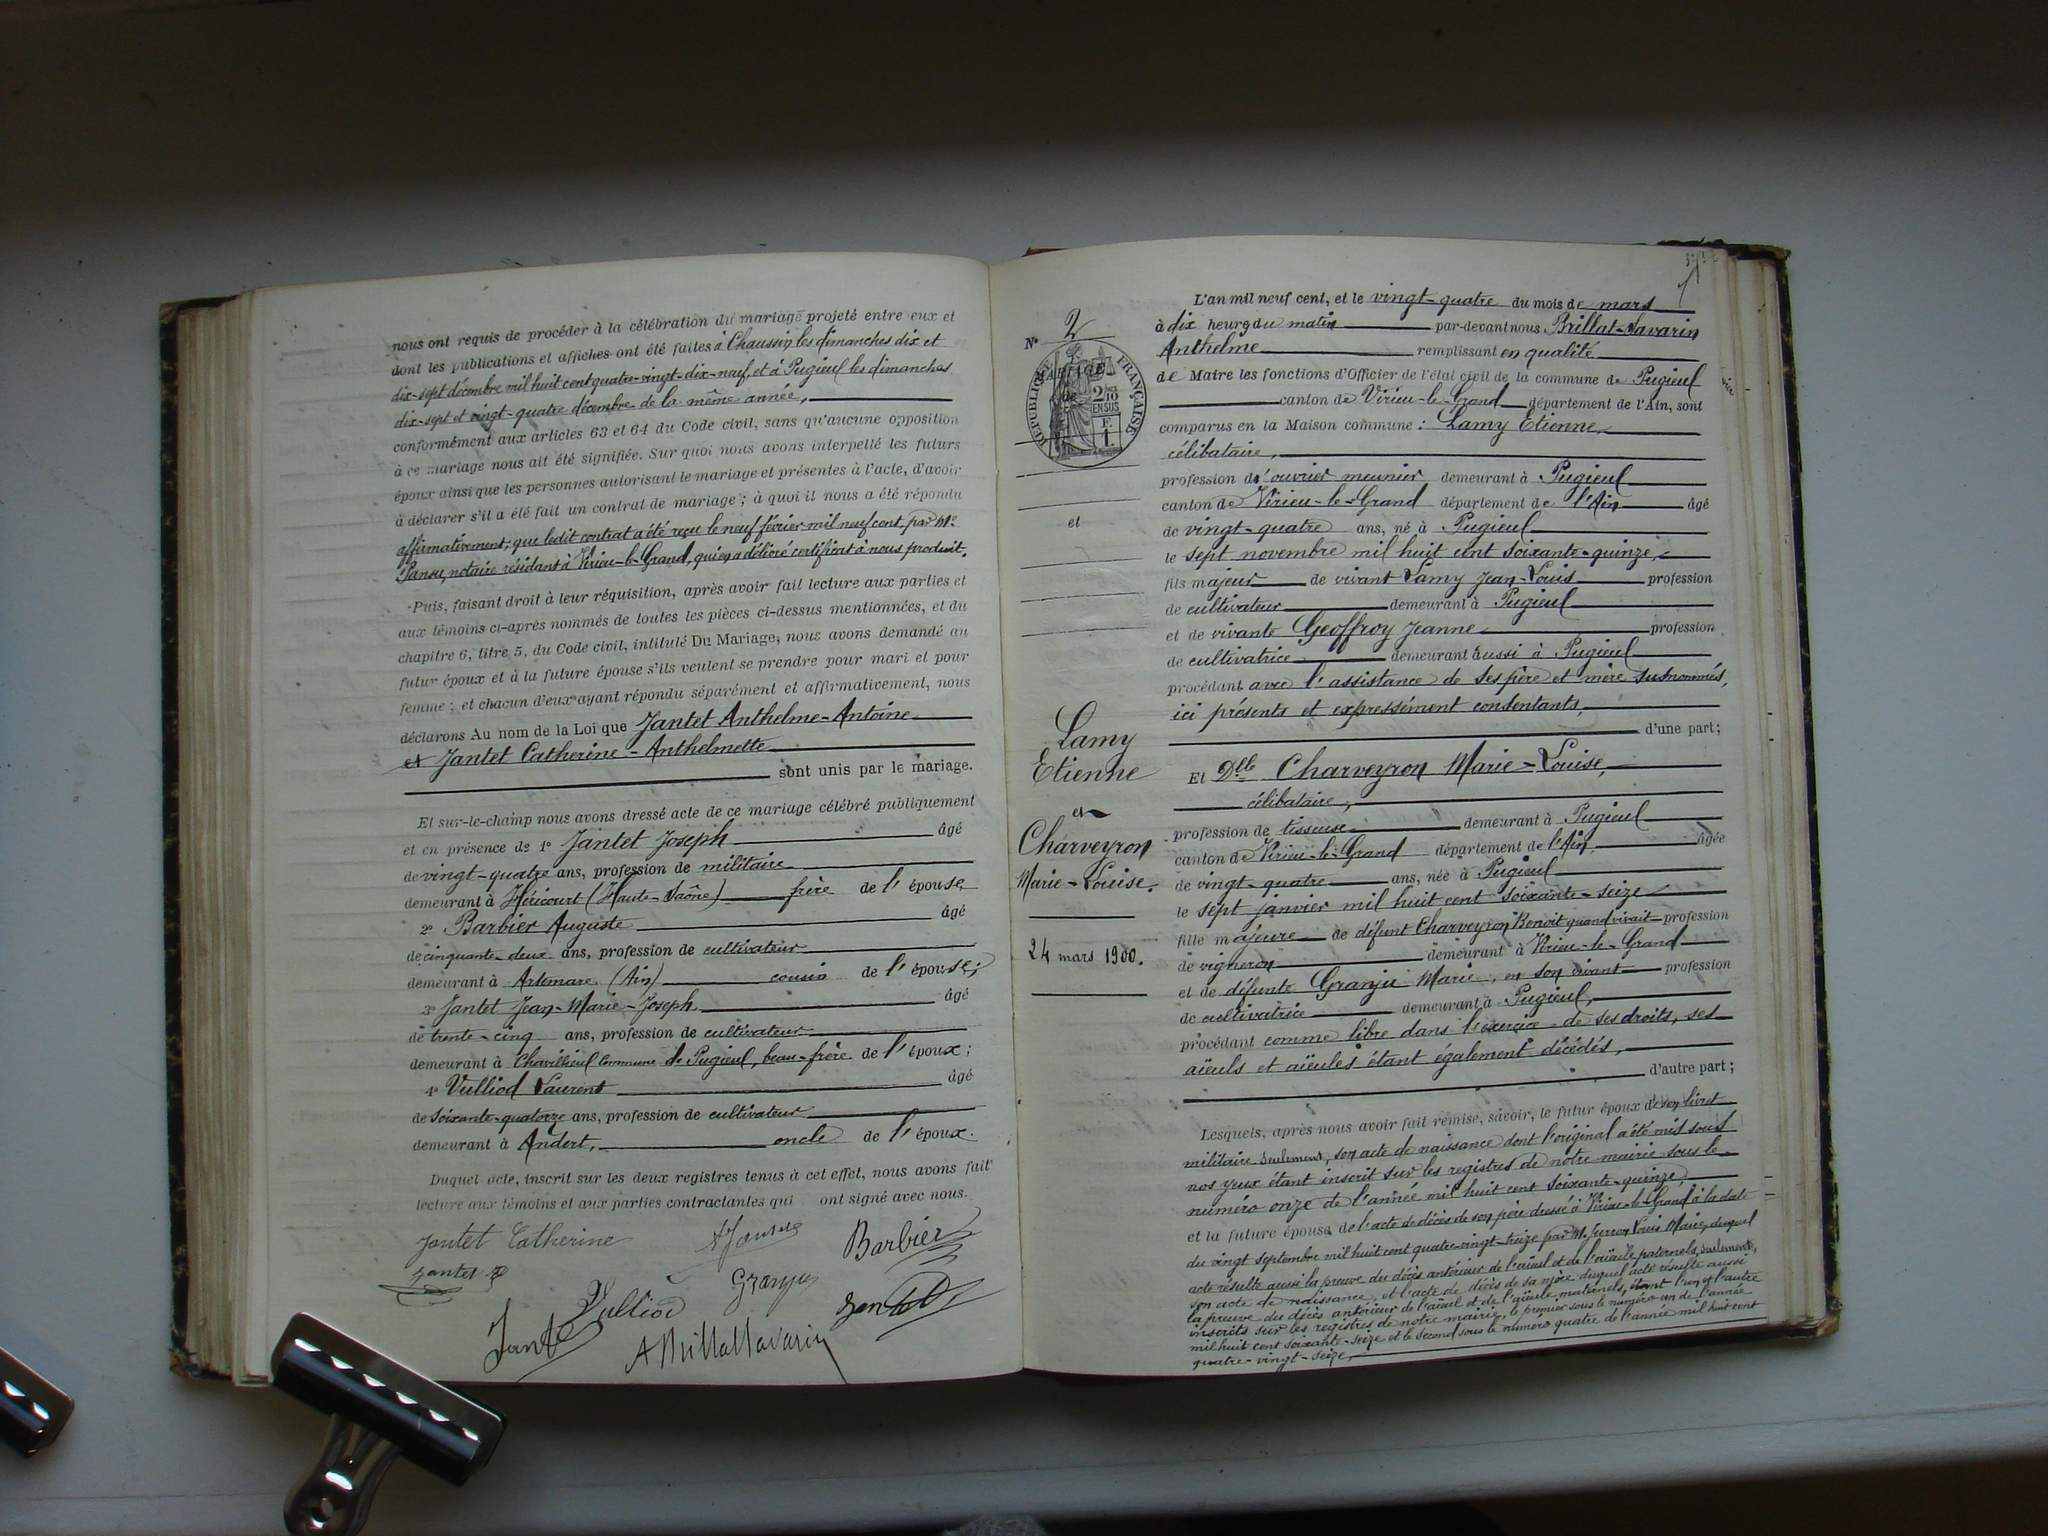 nous ont requis de procéder à la célébration du mariage projeté entre eux et
dont les publications et affiches ont été faites à Chaussin les dimanches dix et
dix-sept décembre mil huit cent quatre-vingt-dix-neuf, et à Pugieul les dimanches
dix-sept et vingt-quatre décembre de la même année,
conformément aux articles 63 et 64 du Code civil, sans qu'aucune opposition
à ce mariage nous ait été signifiée. Sur quoi nous avons interpellé les futurs
époux ainsi que les personnes autorisant le mariage et présentes à l'acte, d'avoir
à déclarer s'il a été fait un contrat de mariage ; à quoi il nous a été répondu
affirmativement, que ledit contrat a été reçu le neuf février mil neuf cent, par Me
Pansu, notaire résidant à Virieu-le-Grand, qui en a délivré certificat à nous produit.
Puis, faisant droit à leur réquisition, après avoir fait lecture aux parties et
aux témoins ci-après nommés de toutes les pièces ci-dessus mentionnées, et du
chapitre 6, titre 5, du Code civil, intitulé Du Mariage, nous avons demandé au
futur époux et à la future épouse s'ils veulent se prendre pour mari et pour
femme ; et chacun d'eux ayant répondu séparément et affirmativement, nous
déclarons Au nom de la Loi que Jantet Anthelme-Antoine
et Jantet Catherine-Anthelmette
sont unis par le mariage.
Et sur-le-champ nous avons dressé acte de ce mariage célébré publiquement
et en présence de 1° Jantet Joseph âgé
de vingt-quatre ans, profession de militaire
demeurant à Héricourt (Haute-Saône) frère de l'épouse
2° Barbier Auguste âgé
de cinquante-deux ans, profession de cultivateur
demeurant à Artemare (Ain) cousin de l'épouse;
3° Jantet Jean-Marie-Joseph âgé
de trente-cinq ans, profession de cultivateur
demeurant à commune de Pugieul, beau-frère de l'époux;
4° Vulliod Laurent âgé
de soixante-quatorze ans, profession de cultivateur
demeurant à Andert, oncle de l'époux.
Duquel acte, inscrit sur les deux registres tenus à cet effet, nous avons fait
lecture aux témoins et aux parties contractantes qui ont signé avec nous.
Jantet Catherine
A Jantet
Barbier
Jantet
Vulliod
Jantet
Jantet
A Brillat Savarin
N° 2
RÉPUBLIQUE FRANÇAISE
MARIAGE
de
2/10 EN SUS
F. 1.
et
Lamy
Etienne
et
Charveyron
Marie-Louise.
24 mars 1900.
L'an mil neuf cent, et le vingt-quatre du mois de mars
à dix heures du matin par-devant nous Brillat-Savarin
Anthelme remplissant en qualité
de Maire les fonctions d'Officier de l'état civil de la commune de Pugieul
canton de Virieu-le-Grand département de l'Ain, sont
comparus en la Maison commune : Lamy Etienne,
célibataire,
profession d'ouvrier meunier demeurant à Pugieul
canton de Virieu-le-Grand département de l'Ain âgé
de vingt-quatre ans, né à Pugieul
le sept novembre mil huit cent soixante-quinze,
fils majeur de vivant Lamy Jean-Louis profession
de cultivateur demeurant à Pugieul
et de vivante Geoffroy Jeanne profession
de cultivatrice demeurant aussi à Pugieul
procédant avec l'assistance de ses père et mère susnommés,
ici présents et expressément consentants,
d'une part;
Et Dlle Charveyron Marie-Louise,
célibataire,
profession de tisseuse demeurant à Pugieul
canton de Virieu-le-Grand département de l'Ain, âgée
de vingt-quatre ans, née à Pugieul
le sept janvier mil huit cent soixante-seize
fille majeure de défunt Charveyron Benoit quand vivait profession
de vigneron demeurant à Virieu-le-Grand
et de défunte Granju Marie, en son vivant profession
de cultivatrice demeurant à Pugieul,
procédant comme libre dans l'exercice de ses droits, ses
aïeuls et aïeules étant également décédés,
d'autre part;
Lesquels, après nous avoir fait remise, savoir, le futur époux de son livret
militaire seulement, son acte de naissance dont l'original a été mis sous
nos yeux étant inscrit sur les registres de notre mairie sous le
numéro onze de l'année mil huit cent soixante-quinze,
et la future épouse de l'acte de décès de son père dressé à Virieu-le-Grand à la date
du vingt septembre mil huit cent quatre-vingt-treize par M. Louis Maire, duquel
acte résulte aussi la preuve du décès antérieur de l'aïeul et de l'aïeule paternels, seulement,
son acte de naissance, et l'acte de décès de sa mère duquel acte résulte aussi
la preuve du décès antérieur de l'aïeul et de l'aïeule maternels, étant l'un et l'autre
inscrits sur les registres de notre mairie, le premier sous le numéro un de l'année
mil huit cent soixante-seize et le second sous le numéro quatre de l'année mil huit cent
quatre-vingt-seize,